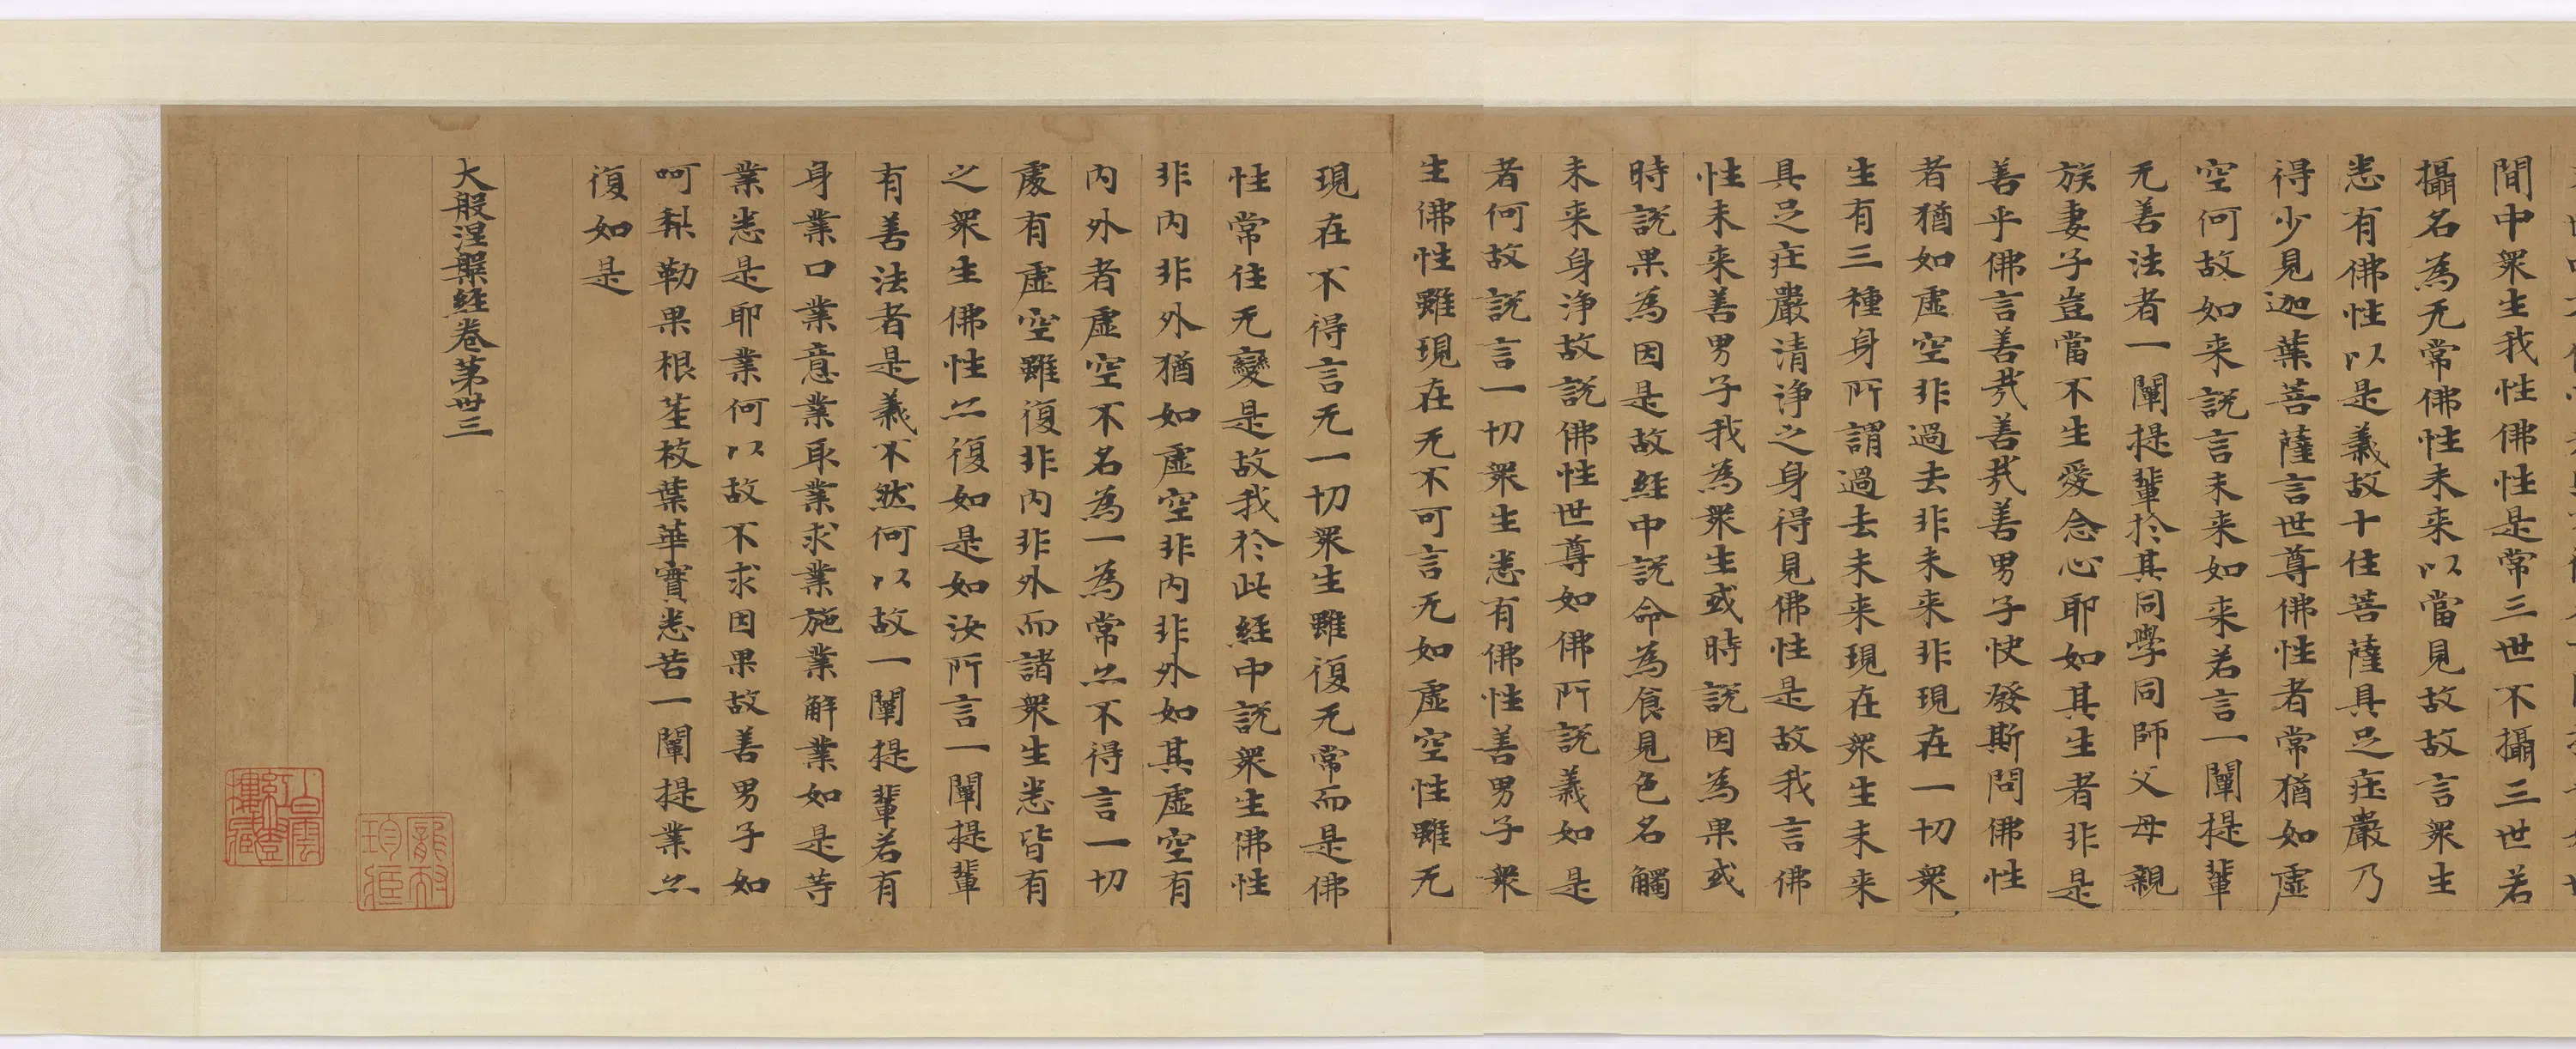 間中衆生我性佛性是常三世不攝三世若
攝名為无常佛性未来以當見故故言衆生
悉有佛性以是義故十住菩薩具足莊嚴乃
得少見迦葉菩薩言世尊佛性者常猶如虛
空何故如来說言未来如来若言一闡提輩
无善法者一闡提輩於其同學同師父母親
族妻子豈當不生愛念心耶如其生者非是
善乎佛言善哉善哉善男子快發斯問佛性
者猶如虛空非過去非未来非現在一切衆
生有三種身所謂過去未来現在衆生未来
具足莊嚴清淨之身得見佛性是故我言佛
性未来善男子我為衆生或時說因為果或
時說果為因是故經中說命為食見色名觸
未来身淨故說佛性世尊如佛所說義如是
者何故說言一切衆生悉有佛性善男子衆
生佛性雖現在无不可言无如虛空性雖无
現在不得言无一切衆生雖復无常而是佛
性常住无變是故我於此經中說衆生佛性
非内非外猶如虛空非内非外如其虛空有
内外者虛空不名為一為常亦不得言一切
處有虛空雖復非内非外而諸衆生悉皆有
之衆生佛性亦復如是如汝所言一闡提輩
有善法者是義不然何以故一闡提輩若有
身業口業意業取業求業施業解業如是等
業悉是耶業何以故不求因果故善男子如
呵梨勒果根莖枝葉華實悉苦一闡提業亦
復如是
大般涅槃經卷第卅三